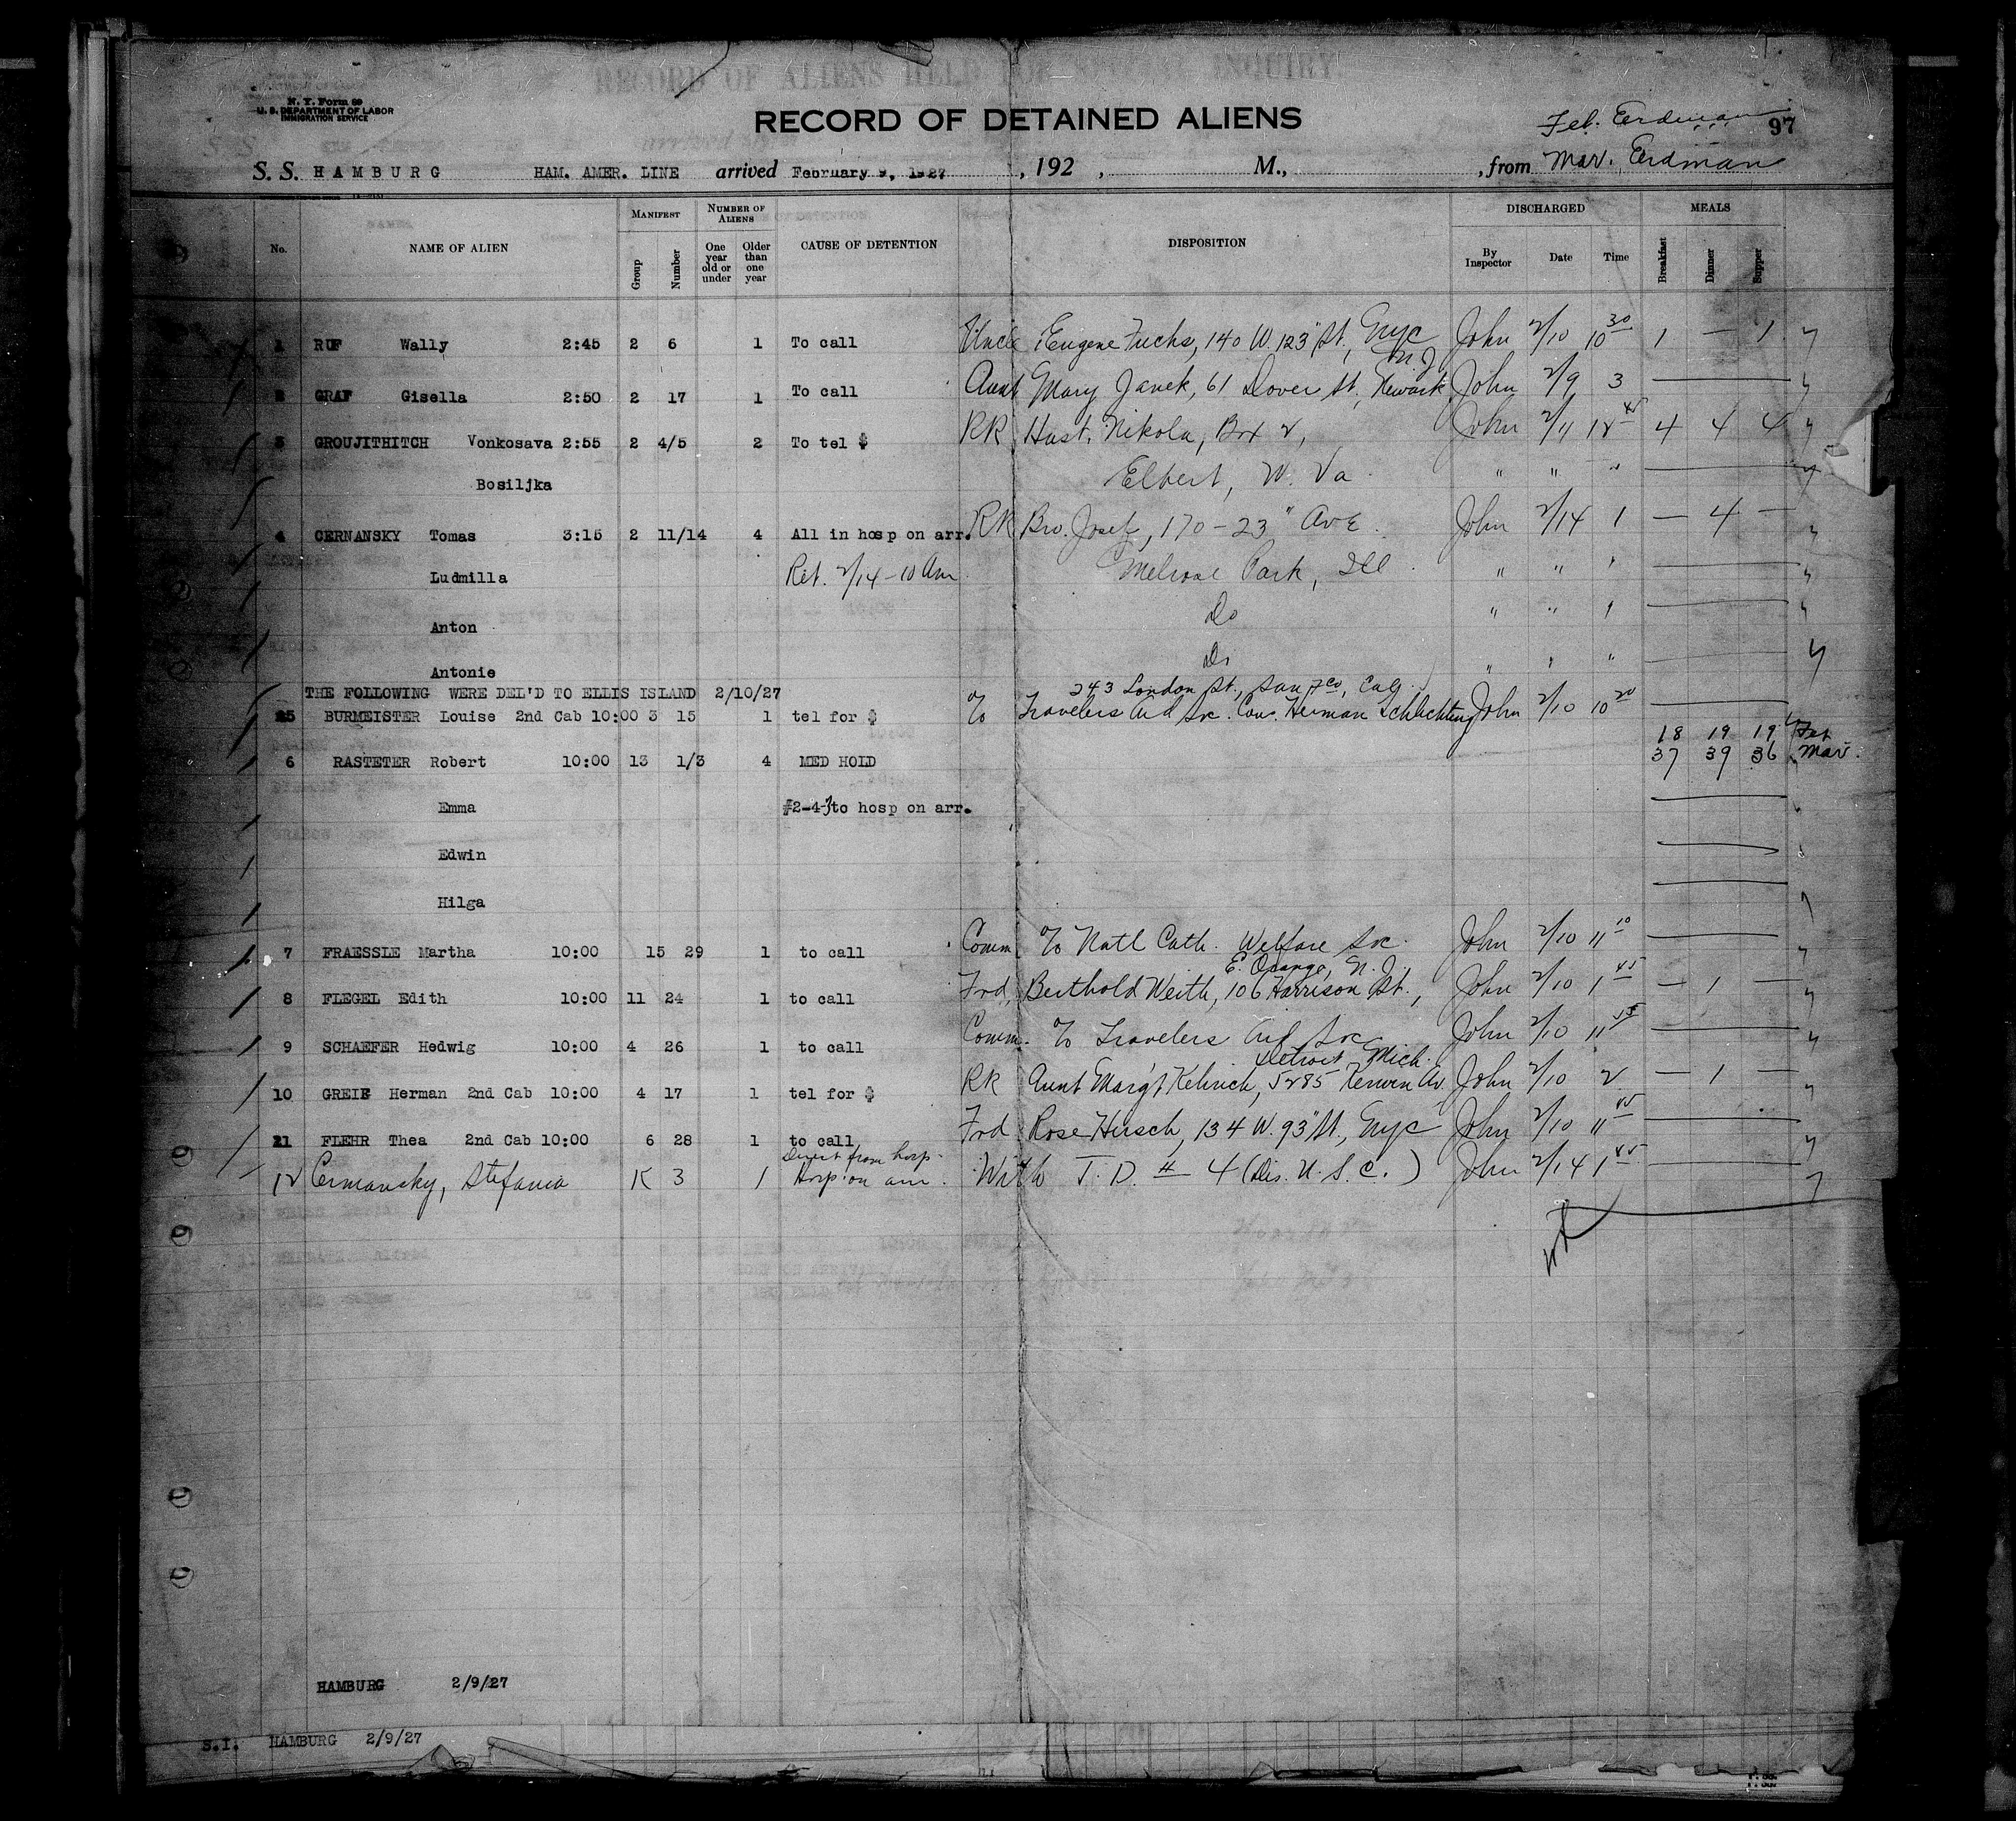 N. Y. Form 69
U. S. DEPARTMENT OF LABOR
IMMIGRATION SERVICE
RECORD OF ALIENS HELD FOR SPECIAL INQUIRY
RECORD OF DETAINED ALIENS
Feb. Erdman 97
S. S. HAMBURG HAM. AMER. LINE arrived February 9, 1927 , 192 , M., , from Mar. Erdman
No. NAME OF ALIEN MANIFEST Group Number NUMBER OF ALIENS One year old or under Older than one year CAUSE OF DETENTION DISPOSITION DISCHARGED By Inspector Date Time MEALS Breakfast Dinner Supper
1 RUF Wally 2:45 2 6 1 To call Uncle Eugene Fuchs, 140 W. 123" St., Nyc John 2/10 10 30 1 — 1
N.J.
2 GRAF Gisella 2:50 2 17 1 To call Aunt Mary Janek, 61 Dover St., Newark John 2/9 3
3 GROUJITHITCH Vonkosava 2:55 2 4/5 2 To tel $ RR Hust. Nikola, Box 2, John 2/11 12 45 4 4 4
Bosiljka Elbert, W. Va. " " "
4 CERNANSKY Tomas 3:15 2 11/14 4 All in hosp on arr. RR Bro. Josef, 170-23" Ave. John 2/14 1 — 4 —
Ludmilla Ret. 2/14-10 Am. Melrose Park, Ill. " " "
Anton Do " " "
Antonie Do " " "
THE FOLLOWING WERE DEL'D TO ELLIS ISLAND 2/10/27
243 London St., San Fco, Calif.
5 BURMEISTER Louise 2nd Cab 10:00 3 15 1 tel for $ % Travelers Aid Soc. Cou. Herman Schlichting John 2/10 10 20
18 19 19 Feb
6 RASTETER Robert 10:00 13 1/3 4 MED HOLD 37 39 36 Mar.
Emma #2-4 to hosp on arr.
Edwin
Hilga
7 FRAESSLE Martha 10:00 15 29 1 to call Comm. % Natl Cath. Welfare Soc. John 2/10 11 10
E. Orange, N. J.
8 FLEGEL Edith 10:00 11 24 1 to call Frd. Berthold Weith, 106 Harrison St., John 2/10 1 45 — 1 —
9 SCHAEFER Hedwig 10:00 4 26 1 to call Comm. % Travelers Aid Soc. John 2/10 11 55
Detroit, Mich.
10 GREIF Herman 2nd Cab 10:00 4 17 1 tel for $ RR Aunt Margt Kehrich, 5285 Kerwin Av. John 2/10 2 — 1 —
11 FLEHR Thea 2nd Cab 10:00 6 28 1 to call Frd. Rose Hirsch, 134 W. 93" St., Nyc John 2/10 11 45
Direct from hosp.
12 Cernansky, Stefania K 3 1 Hosp. on arr. With T. D. # 4 (Dis. U. S. C.) John 2/14 1 45
HAMBURG 2/9/27
S.I. HAMBURG 2/9/27